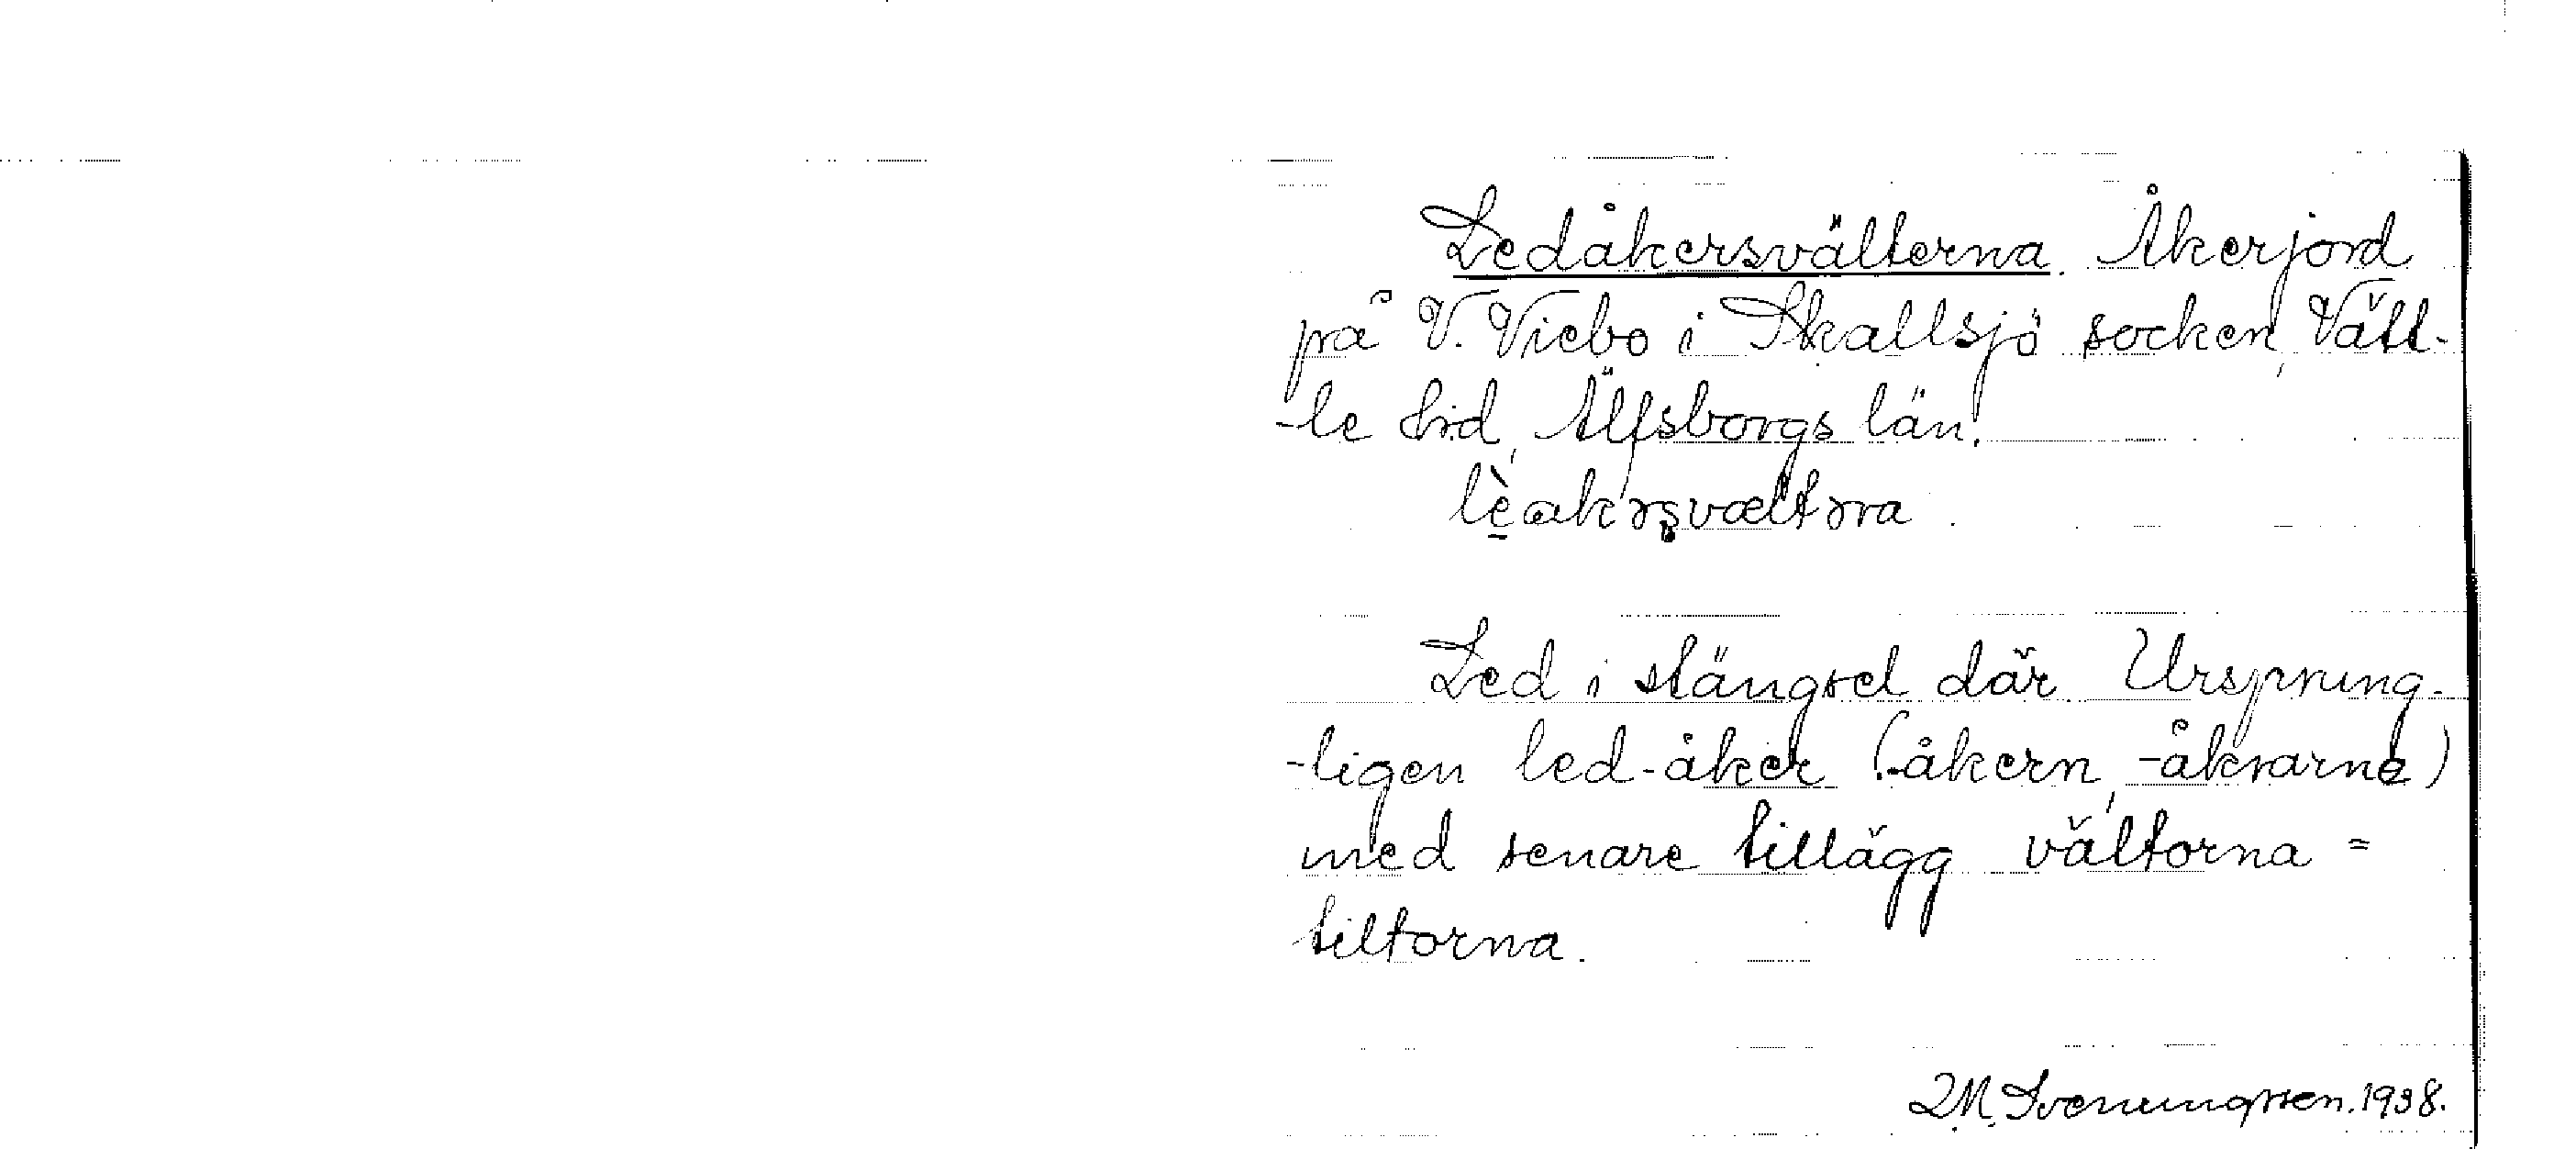 Ledåkersvälterna. Åkerjord
på V. Viebo i Skallsjö socken, Vätt-
-le hd, Älfsborgs län.
lèakrsvæltra.
Led i stängsel där Ursprung-
-ligen led-åker (-åkern, -åkrarne)
med senare tillägg vältorna =
tiltorna.
Svenungsson. 1938.